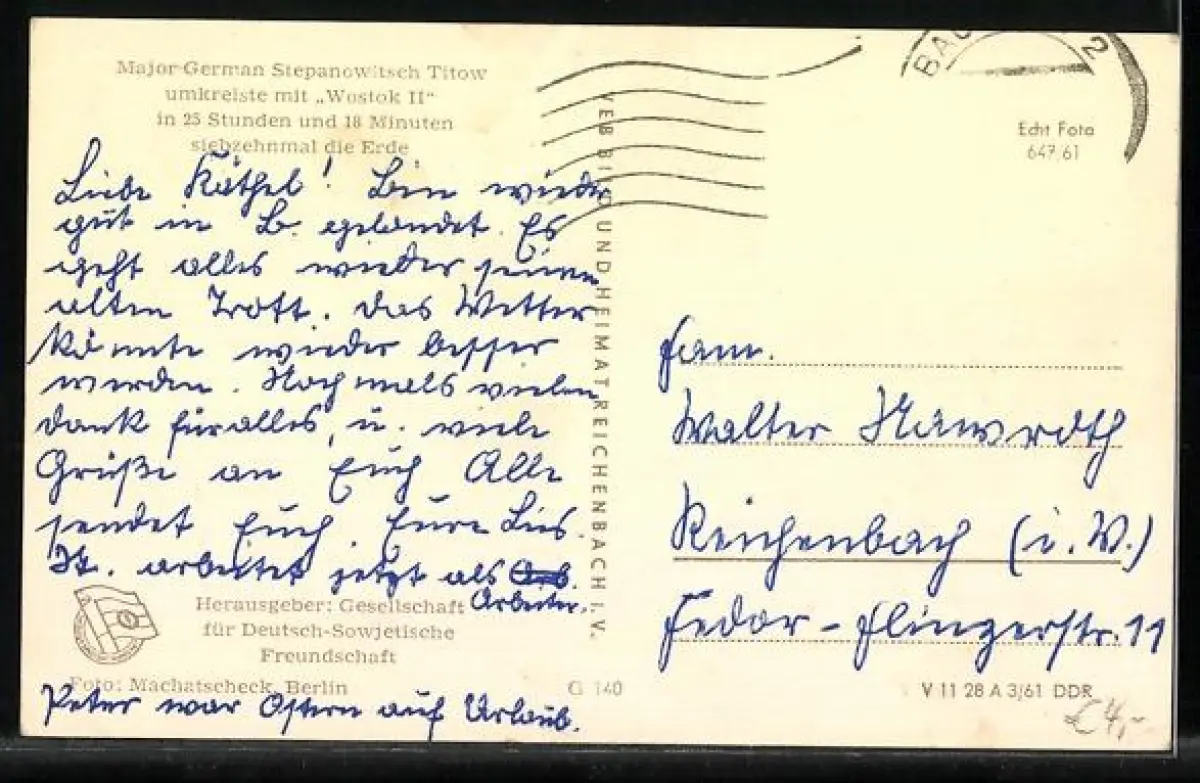 Major German Stepanowitsch Titow
umkreiste mit „Wostok II"
in 25 Stunden und 18 Minuten
siebzehnmal die Erde
Liebe Käthel! Bin wieder
gut in B. gelandet. Es
geht alles wieder seinen
alten Trott. Das Wetter
könnte wieder besser
werden. Nochmals vielen
Dank für alles, u. viele
Grüße an Euch Alle
sendet Euch Eure Lies.
St. arbeitet jetzt als
Arbeiter.
Herausgeber: Gesellschaft
für Deutsch-Sowjetische
Freundschaft
Foto: Machatscheck, Berlin
Peter war Ostern auf Urlaub.
VEB BILD UND HEIMAT REICHENBACH I. V.
G 140
BAU
2
Echt Foto
647/61
Fam.
Walter Nawroth
Reichenbach (i. V.)
Fedor-Flingerstr. 11
V 11 28 A 3/61 DDR
€ 4,-